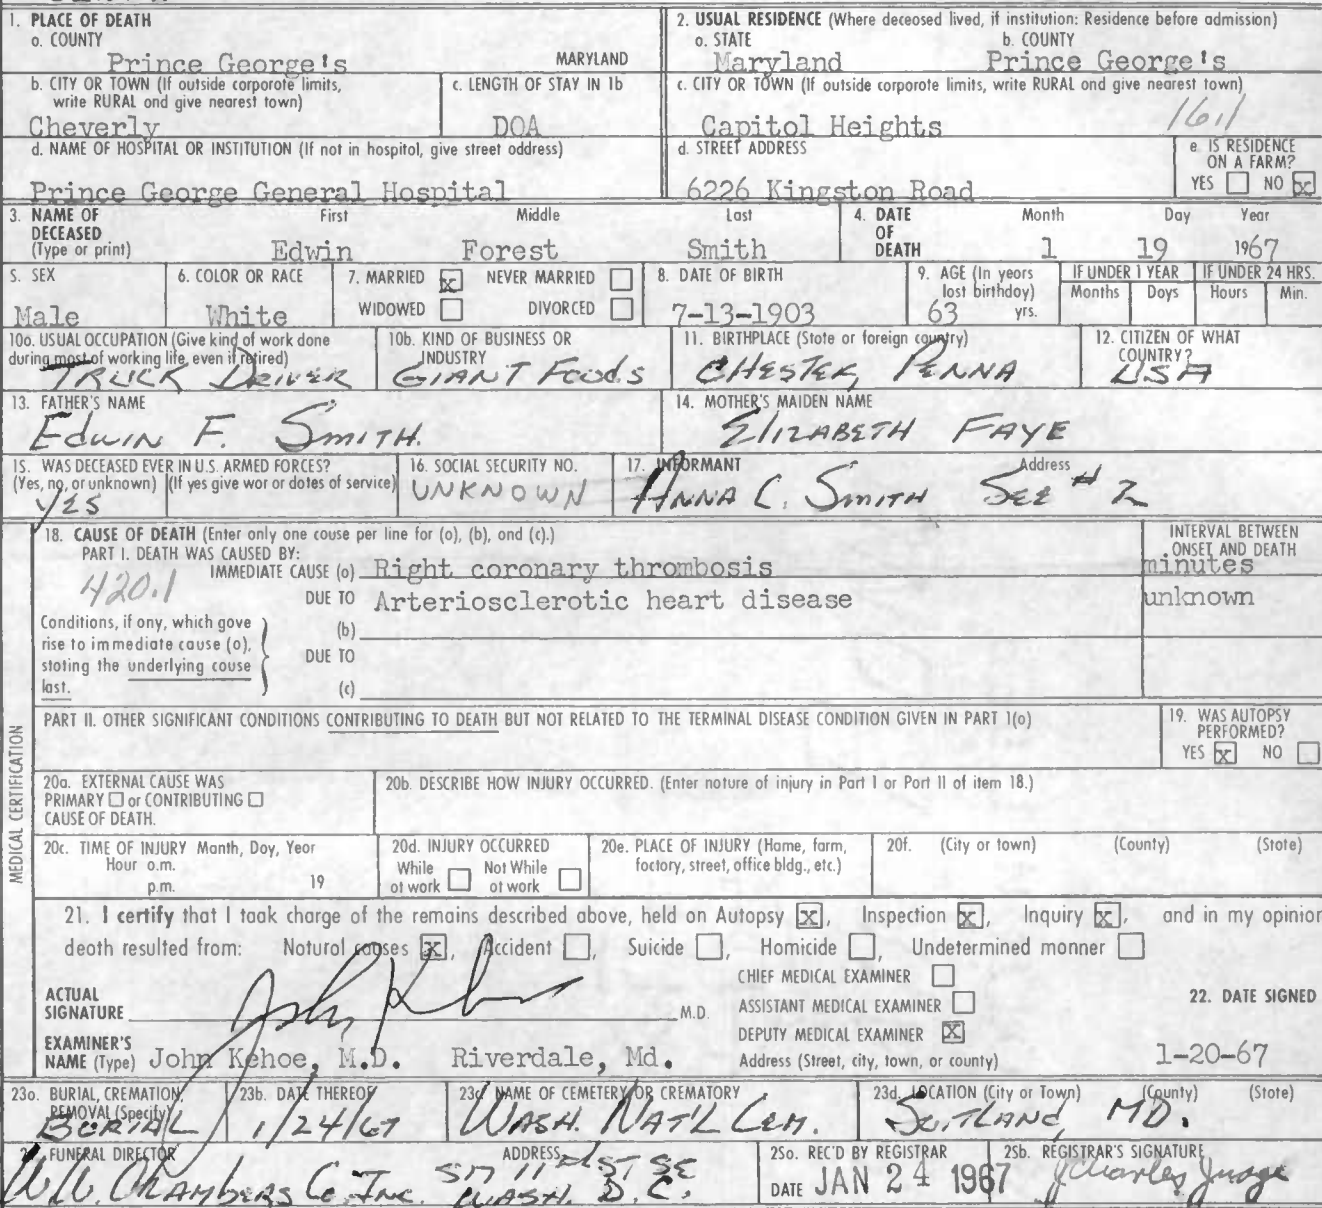 1. PLACE OF DEATH
a. COUNTY
Prince George's MARYLAND
2. USUAL RESIDENCE (Where deceased lived, if institution: Residence before admission)
a. STATE b. COUNTY
Maryland Prince George's
b. CITY OR TOWN (If outside corporate limits, write RURAL and give nearest town)
Cheverly
c. LENGTH OF STAY IN 1b
DOA
c. CITY OR TOWN (If outside corporate limits, write RURAL and give nearest town)
Capitol Heights 1611
d. NAME OF HOSPITAL OR INSTITUTION (If not in hospital, give street address)
Prince George General Hospital
d. STREET ADDRESS
6226 Kingston Road
e. IS RESIDENCE ON A FARM?
YES NO x
3. NAME OF DECEASED (Type or print)
First Middle Last
Edwin Forest Smith
4. DATE OF DEATH
Month Day Year
1 19 1967
5. SEX
Male
6. COLOR OR RACE
White
7. MARRIED x NEVER MARRIED
WIDOWED DIVORCED
8. DATE OF BIRTH
7-13-1903
9. AGE (In years last birthday)
63 yrs.
IF UNDER 1 YEAR
Months Days
IF UNDER 24 HRS.
Hours Min.
10a. USUAL OCCUPATION (Give kind of work done during most of working life, even if retired)
TRUCK DRIVER
10b. KIND OF BUSINESS OR INDUSTRY
GIANT FOODS
11. BIRTHPLACE (State or foreign country)
CHESTER, PENNA
12. CITIZEN OF WHAT COUNTRY?
USA
13. FATHER'S NAME
EDWIN F. SMITH.
14. MOTHER'S MAIDEN NAME
ELIZABETH FAYE
15. WAS DECEASED EVER IN U.S. ARMED FORCES?
(Yes, no, or unknown) (If yes give war or dates of service)
YES
16. SOCIAL SECURITY NO.
UNKNOWN
17. INFORMANT Address
ANNA C. SMITH SEE # 2
MEDICAL CERTIFICATION
18. CAUSE OF DEATH (Enter only one cause per line for (a), (b), and (c).)
PART I. DEATH WAS CAUSED BY:
INTERVAL BETWEEN ONSET AND DEATH
IMMEDIATE CAUSE (a) Right coronary thrombosis minutes
420.1
DUE TO Arteriosclerotic heart disease unknown
Conditions, if any, which gave rise to immediate cause (a), stating the underlying cause last.
(b)
DUE TO
(c)
PART II. OTHER SIGNIFICANT CONDITIONS CONTRIBUTING TO DEATH BUT NOT RELATED TO THE TERMINAL DISEASE CONDITION GIVEN IN PART 1(a)
19. WAS AUTOPSY PERFORMED?
YES x NO
20a. EXTERNAL CAUSE WAS
PRIMARY or CONTRIBUTING
CAUSE OF DEATH.
20b. DESCRIBE HOW INJURY OCCURRED. (Enter nature of injury in Part I or Part II of item 18.)
20c. TIME OF INJURY Month, Day, Year
Hour a.m.
p.m. 19
20d. INJURY OCCURRED
While at work Not While at work
20e. PLACE OF INJURY (Home, farm, factory, street, office bldg., etc.)
20f. (City or town) (County) (State)
21. I certify that I took charge of the remains described above, held an Autopsy x, Inspection x, Inquiry x, and in my opinion
death resulted from: Natural causes x, Accident, Suicide, Homicide, Undetermined manner
ACTUAL SIGNATURE John Kehoe M.D.
CHIEF MEDICAL EXAMINER
ASSISTANT MEDICAL EXAMINER
DEPUTY MEDICAL EXAMINER X
22. DATE SIGNED
1-20-67
EXAMINER'S NAME (Type) John Kehoe, M.D. Riverdale, Md.
Address (Street, city, town, or county)
23a. BURIAL, CREMATION, REMOVAL (Specify)
BURIAL
23b. DATE THEREOF
1/24/67
23c. NAME OF CEMETERY OR CREMATORY
WASH. NAT'L CEM.
23d. LOCATION (City or Town) (County) (State)
SUITLAND, MD.
FUNERAL DIRECTOR ADDRESS
W.W. CHAMBERS Co. INC. 517 11th ST SE
WASH. D.C.
25a. REC'D BY REGISTRAR
DATE JAN 24 1967
25b. REGISTRAR'S SIGNATURE
Charles Judge